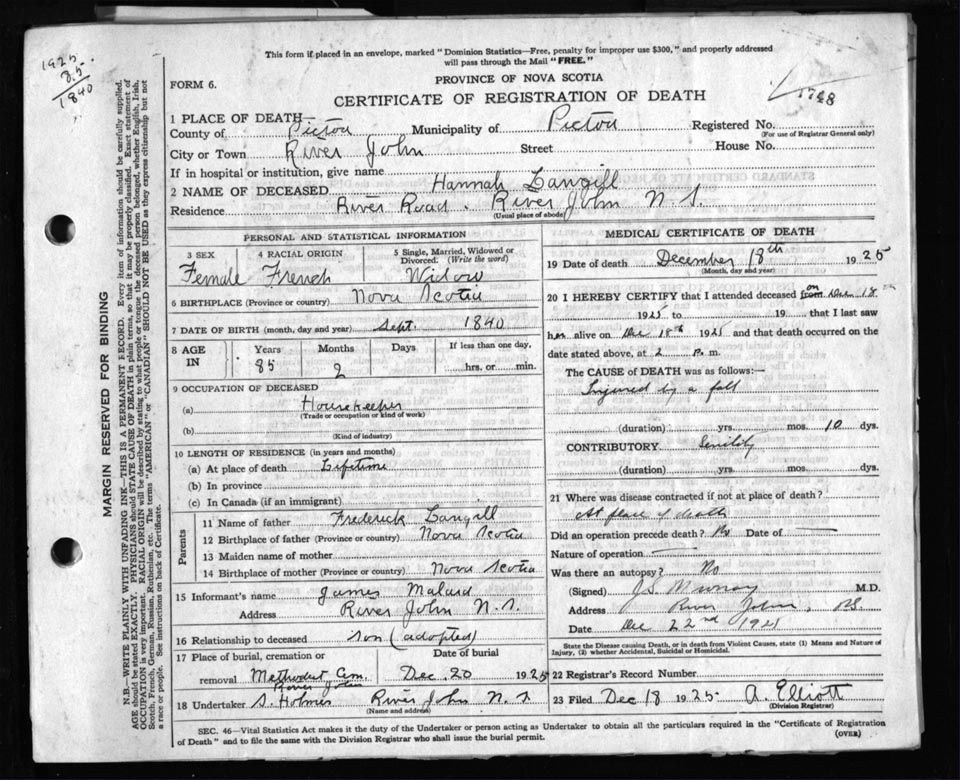 This form if placed in an envelope, marked "Dominion Statistics—Free, penalty for improper use $300," and properly addressed
will pass through the Mail "FREE."
1925
8.5
1840
FORM 6.
PROVINCE OF NOVA SCOTIA
CERTIFICATE OF REGISTRATION OF DEATH
1 PLACE OF DEATH
County of Pictou Municipality of Pictou Registered No.
(For use of Registrar General only)
City or Town River John Street House No.
If in hospital or institution, give name
2 NAME OF DECEASED Hannah Langill
Residence River Road. River John N.S.
(Usual place of abode)
PERSONAL AND STATISTICAL INFORMATION
3 SEX 4 RACIAL ORIGIN 5 Single, Married, Widowed or Divorced. (Write the word)
Female French Widow
6 BIRTHPLACE (Province or country) Nova Scotia
7 DATE OF BIRTH (month, day and year) Sept. 1840
8 AGE IN Years Months Days If less than one day,
85 2 hrs. or min.
9 OCCUPATION OF DECEASED
(a) Housekeeper
(Trade or occupation or kind of work)
(b)
(Kind of industry)
10 LENGTH OF RESIDENCE (in years and months)
(a) At place of death Lifetime
(b) In province
(c) In Canada (if an immigrant)
Parents
11 Name of father Frederick Langill
12 Birthplace of father (Province or country) Nova Scotia
13 Maiden name of mother
14 Birthplace of mother (Province or country) Nova Scotia
15 Informant's name James
Address River John N.S.
16 Relationship to deceased son (adopted)
17 Place of burial, cremation or Date of burial
removal Methodist Cem. Dec. 20 1925
River John
18 Undertaker S. Holmes River John N.S
(Name and address)
MEDICAL CERTIFICATE OF DEATH
19 Date of death December 18th 1925
(Month, day and year)
20 I HEREBY CERTIFY that I attended deceased from on Dec 18th
1925 to 19 that I last saw
her alive on Dec 18th 1925 and that death occurred on
date stated above, at 2 p.m.
The CAUSE of DEATH was as follows:—
Injured by a fall
(duration) yrs. mos. 10 dys.
CONTRIBUTORY Senility
(duration) yrs. mos. dys.
21 Where was disease contracted if not at place of death?
At place of death
Did an operation precede death? No Date of
Nature of operation
Was there an autopsy? No
(Signed) J.S. Murray M.D.
Address River John, N.S.
Date Dec 22nd 1925
State the Disease causing Death, or in death from Violent Causes, state (1) Means and Nature of
Injury, (2) whether Accidental, Suicidal or Homicidal.
22 Registrar's Record Number
23 Filed Dec 18 1925 A. Elliott
(Division Registrar)
SEC. 46—Vital Statistics Act makes it the duty of the Undertaker or person acting as Undertaker to obtain all the particulars required in the "Certificate of Registration
of Death" and to file the same with the Division Registrar who shall issue the burial permit.
(OVER)
MARGIN RESERVED FOR BINDING
N.B.—WRITE PLAINLY WITH UNFADING INK—THIS IS A PERMANENT RECORD. Every item of information should be carefully supplied.
AGE should be stated EXACTLY. PHYSICIANS should STATE CAUSE OF DEATH in plain terms, so that it may be properly classified. Exact statement of
OCCUPATION is very important. RACIAL ORIGIN will be described by stating to what people or tongue the deceased person belonged, whether English, Irish,
Scotch, French, German, Russian, Ruthenian, etc. The terms "AMERICAN" or "CANADIAN" SHOULD NOT BE USED as they express citizenship but not
a race or people. See instructions on back of Certificate.